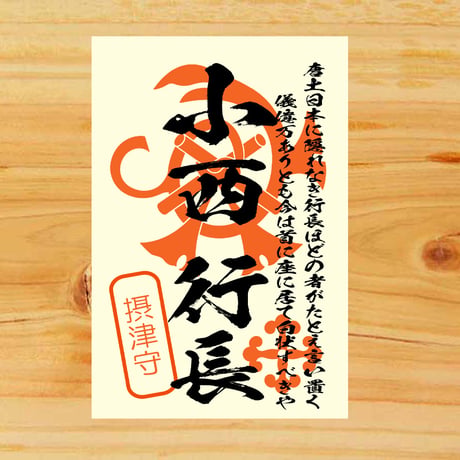 唐土日本に隠れなき行長ほどの者がたとえ言い置く
儀億万ありとも今は首に座に居て白状すべきや
小西行長
摂津守